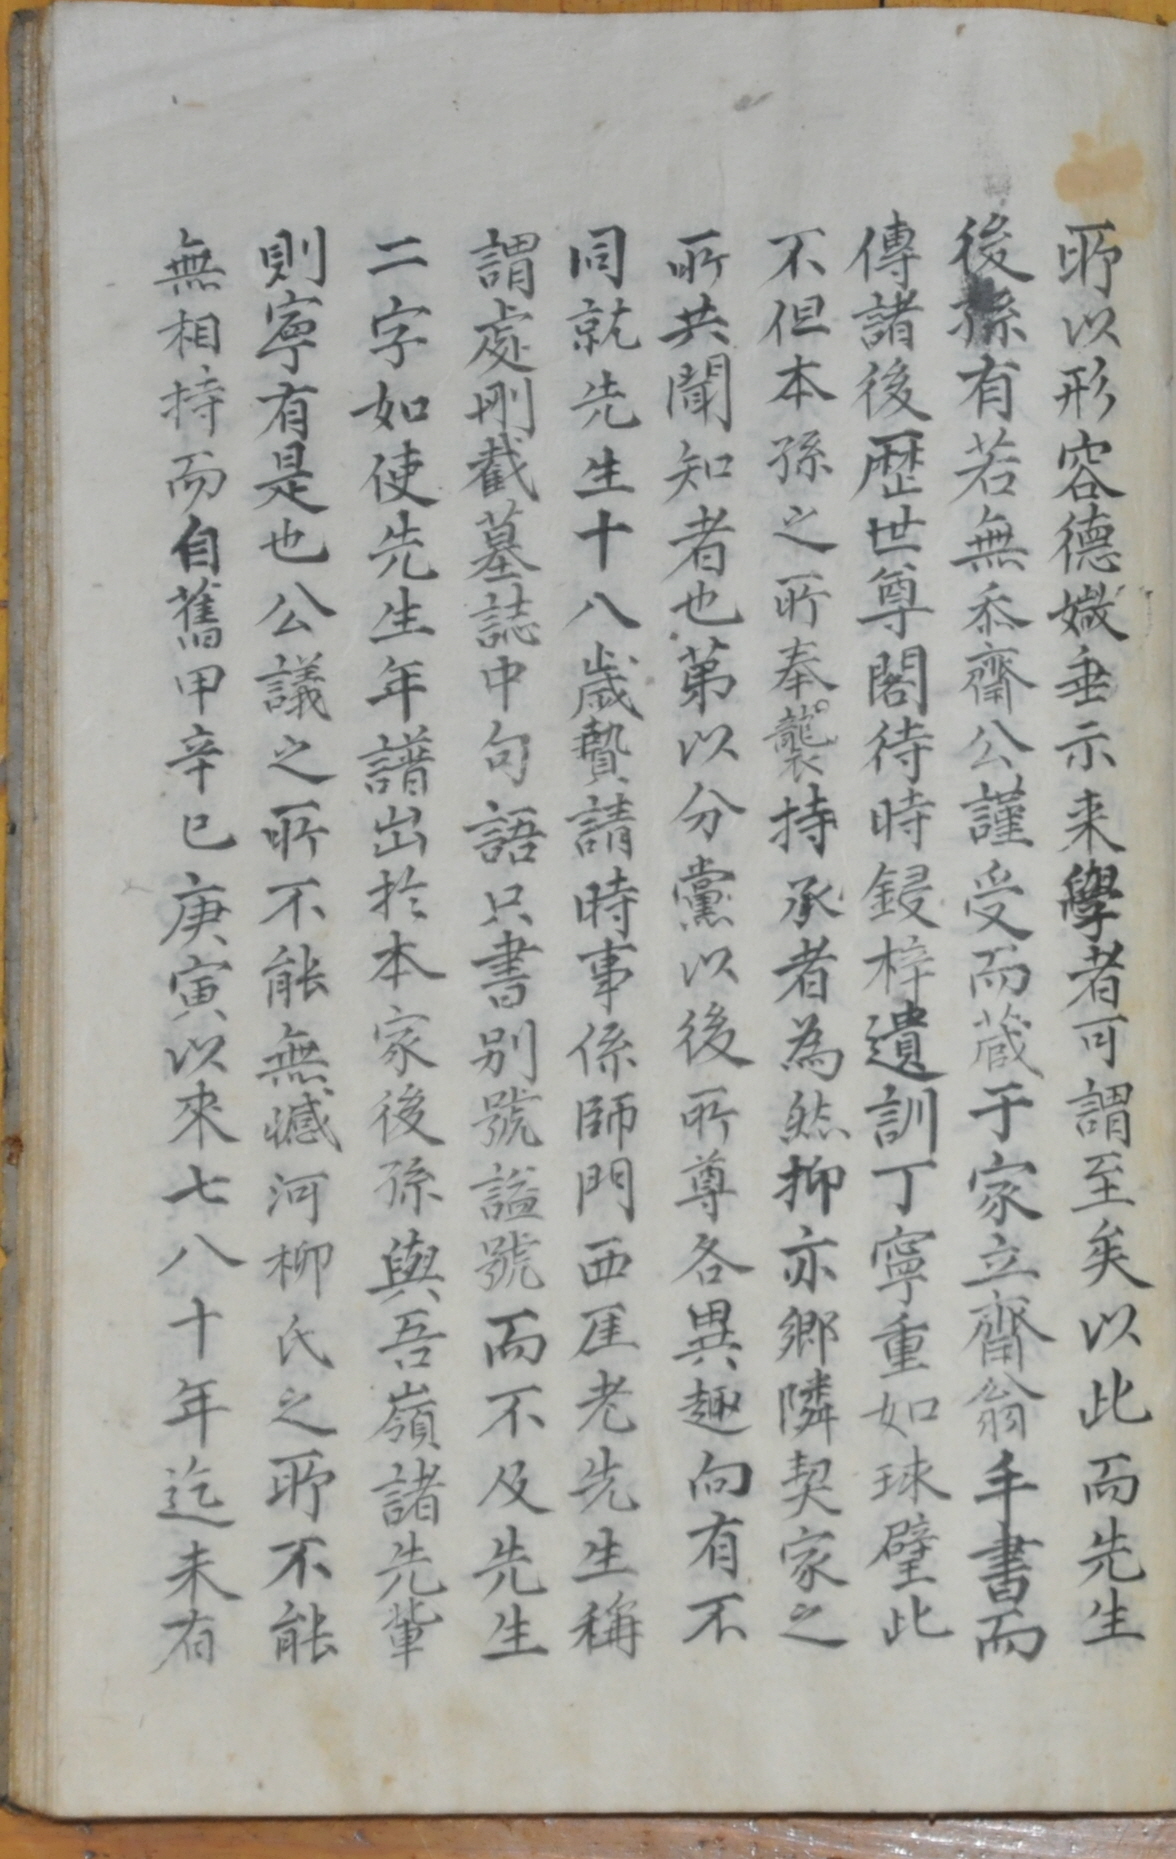 所以形容德媺垂示来學者可謂至矣以此而先生
後孫有若無忝齋公謹受而蔵于家立齋翁手書而
傳諸後歴世尊閣待時鋟梓遺訓丁寧重如球璧此
不但本孫之所奉襲持承者為然抑亦鄉隣契家之
所共聞知者也第以分黨以後所尊各異趣向有不
同就先生十八歲贄請時事係師門西厓老先生稱
謂處刪截墓誌中句語只書別號謚號而不及先生
二字如使先生年譜出於本家後孫與吾嶺諸先輩
則寧有是也公議之所不能無憾河柳氏之所不能
無相持而自舊甲辛巳庚寅以來七八十年迄未有